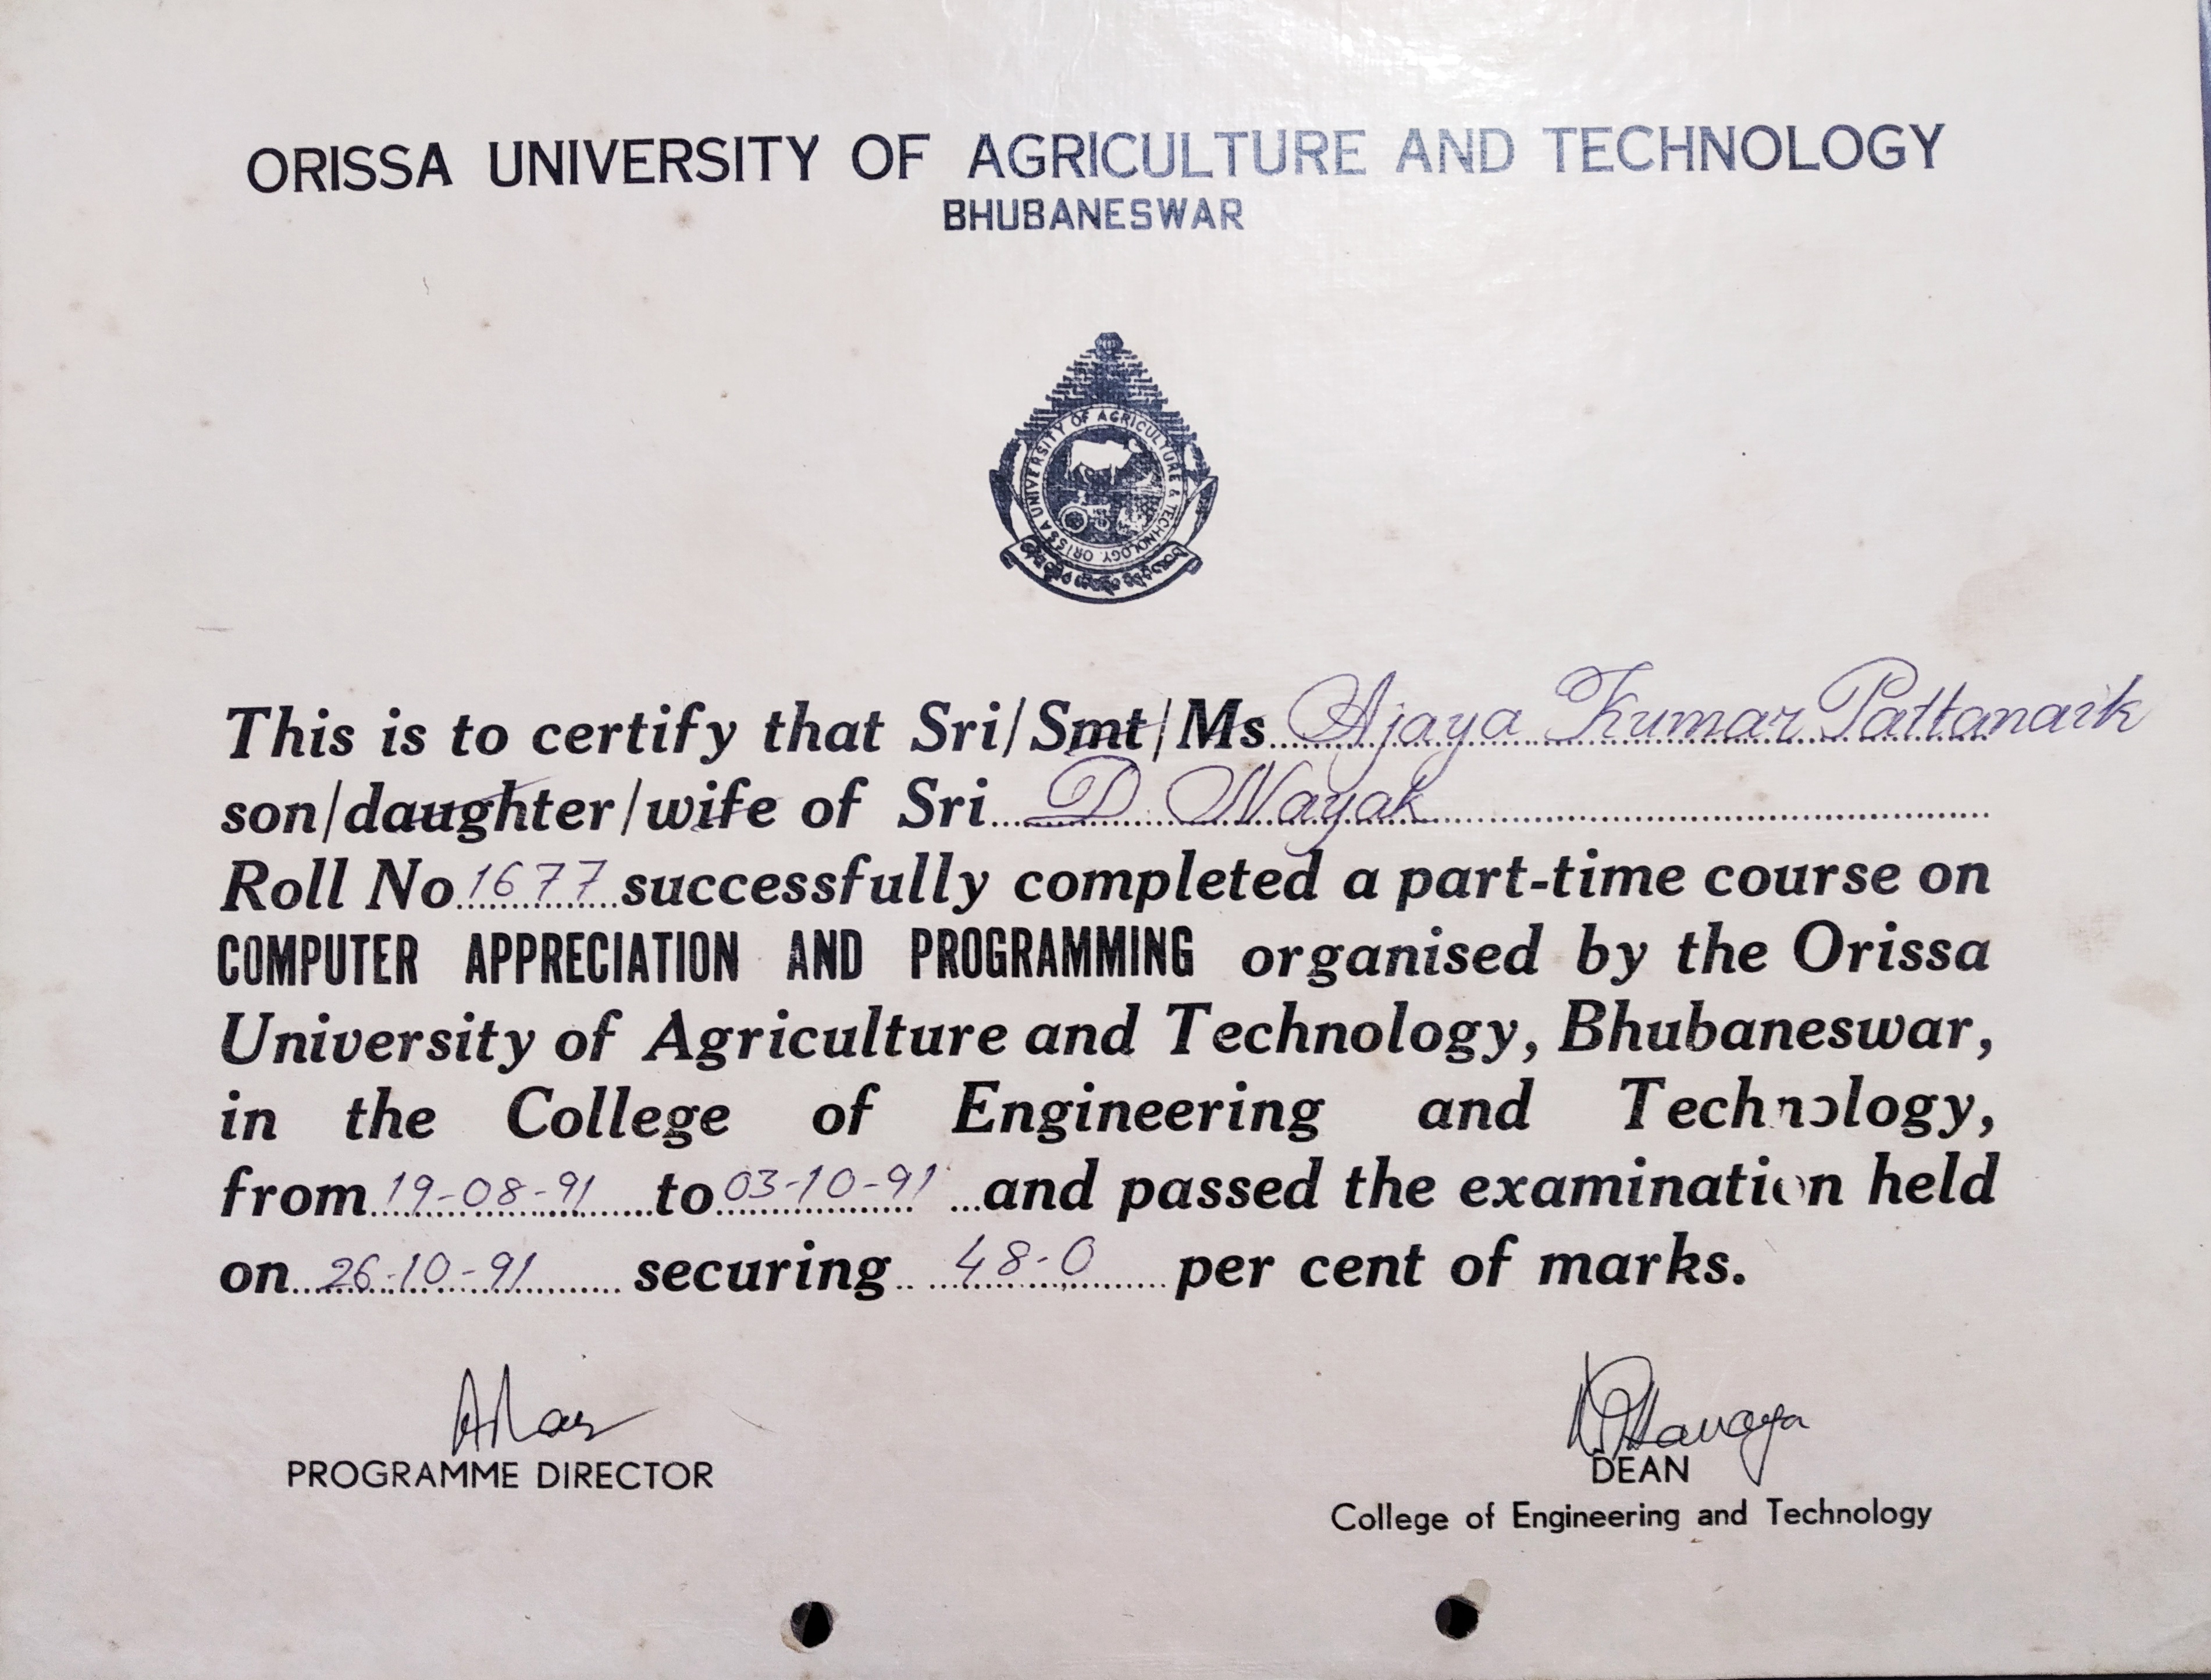 ORISSA UNIVERSITY OF AGRICULTURE AND TECHNOLOGY
BHUBANESWAR
ORISSA UNIVERSITY OF AGRICULTURE & TECHNOLOGY
This is to certify that Sri/Smt/Ms. Ajaya Kumar Pattanaik
son/daughter/wife of Sri D Nayak
Roll No. 1677 successfully completed a part-time course on
COMPUTER APPRECIATION AND PROGRAMMING organised by the Orissa
University of Agriculture and Technology, Bhubaneswar,
in the College of Engineering and Technology,
from 19-08-91 to 03-10-91 and passed the examination held
on 26-10-91 securing 48-0 per cent of marks.
PROGRAMME DIRECTOR
DEAN
College of Engineering and Technology